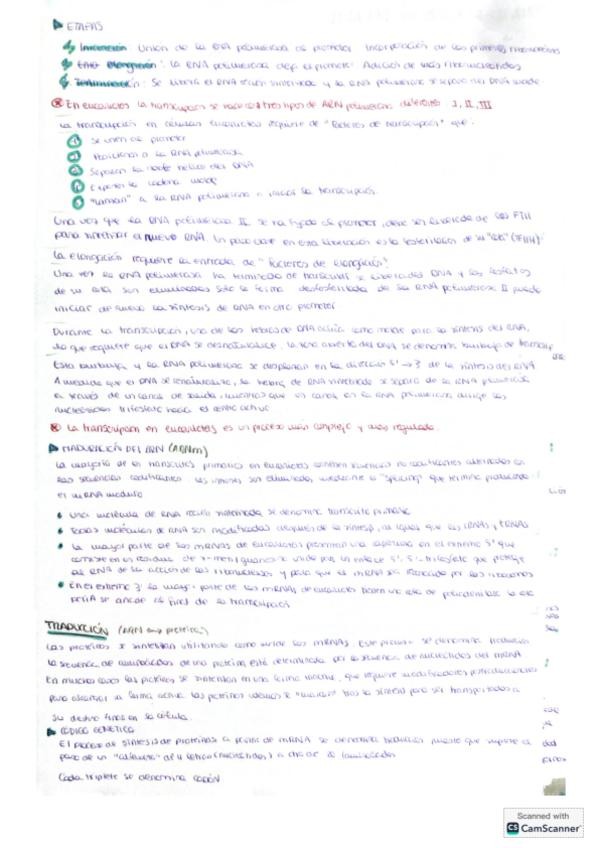 ETAPAS
Iniciación: Unión de la RNA polimerasa al promotor. Incorporación de los primeros ribonucleótidos
Elongación: La RNA polimerasa deja el promotor. Adición de más ribonucleótidos
Terminación: Se libera el RNA recién sintetizado y la RNA polimerasa se separa del DNA molde.
En eucariotas la transcripción se hace con tres tipos de ARN polimerasas diferentes I, II, III
La transcripción en células eucariotas requiere de "factores de transcripción" que:
1 Se unen al promotor
2 Posicionan a la RNA polimerasa
3 Separan la doble hélice del DNA
4 Exponen la cadena molde
5 "Llaman" a la RNA polimerasa a iniciar la transcripción.
Una vez que la RNA polimerasa II se ha fijado al promotor, debe ser liberada de los FTII
para sintetizar el nuevo RNA. Un paso clave en esta liberación es la fosforilación de su "cola" (TFIIH).
La elongación requiere la entrada de "factores de elongación".
Una vez la RNA polimerasa ha terminado de transcribir se libera del DNA y los fosfatos
de su cola son eliminados. Solo la forma desfosforilada de la RNA polimerasa II puede
iniciar de nuevo la síntesis de RNA en otro promotor
Durante la transcripción, una de las hebras de DNA actúa como molde para la síntesis del RNA,
lo que requiere que el DNA se desnaturalice. La zona abierta del DNA se denomina burbuja de
Esta burbuja y la RNA polimerasa se desplazan en la dirección 5' → 3' de la síntesis del RNA
A medida que el DNA se renaturaliza, la hebra de RNA sintetizado se separa de la RNA polimerasa
a través de un canal de salida, mientras que un canal en la RNA polimerasa dirige los
nucleósidos trifosfato hacia el centro activo
La transcripción en eucariotas es un proceso más complejo y más regulado.
MADURACIÓN DEL ARN (ARNm)
La mayoría de los transcritos primarios en eucariotas contienen secuencias no codificantes alternadas con
las secuencias codificantes. Los intrones son eliminados mediante el "splicing" que termina produciendo
el mRNA maduro
Una molécula de RNA recién sintetizada se denomina transcrito primario
Todas moléculas de RNA son modificadas después de la síntesis, al igual que los rRNAs y tRNAs
La mayor parte de los mRNAs de eucariotas presentan una caperuza en el extremo 5' que
consiste en un residuo de 7-metilguanosina unido por un enlace 5'-5' trifosfato que protege
al RNA de la acción de las ribonucleasas y para que el mRNA sea reconocido por los ribosomas
En el extremo 3' la mayor parte de los mRNAs de eucariotas tienen una cola de poliadenilato. La cola
poliA se añade al final de la transcripción
TRADUCCIÓN (ARN a proteínas)
Las proteínas se sintetizan utilizando como molde los mRNAs. Este proceso se denomina traducción
La secuencia de aminoácidos de una proteína está determinada por la secuencia de nucleótidos del mRNA
En muchos casos las proteínas se sintetizan en una forma inactiva, que requiere modificaciones postraduccionales
para alcanzar su forma activa. Las proteínas además se "marcan" tras la síntesis para ser transportadas a
su destino final en la célula.
CÓDIGO GENÉTICO
El proceso de síntesis de proteínas a partir de mRNA se denomina traducción puesto que supone el
paso de un "alfabeto" de 4 letras (nucleótidos) a otro de 20 (aminoácidos)
Cada triplete se denomina codón
Scanned with
CS CamScanner